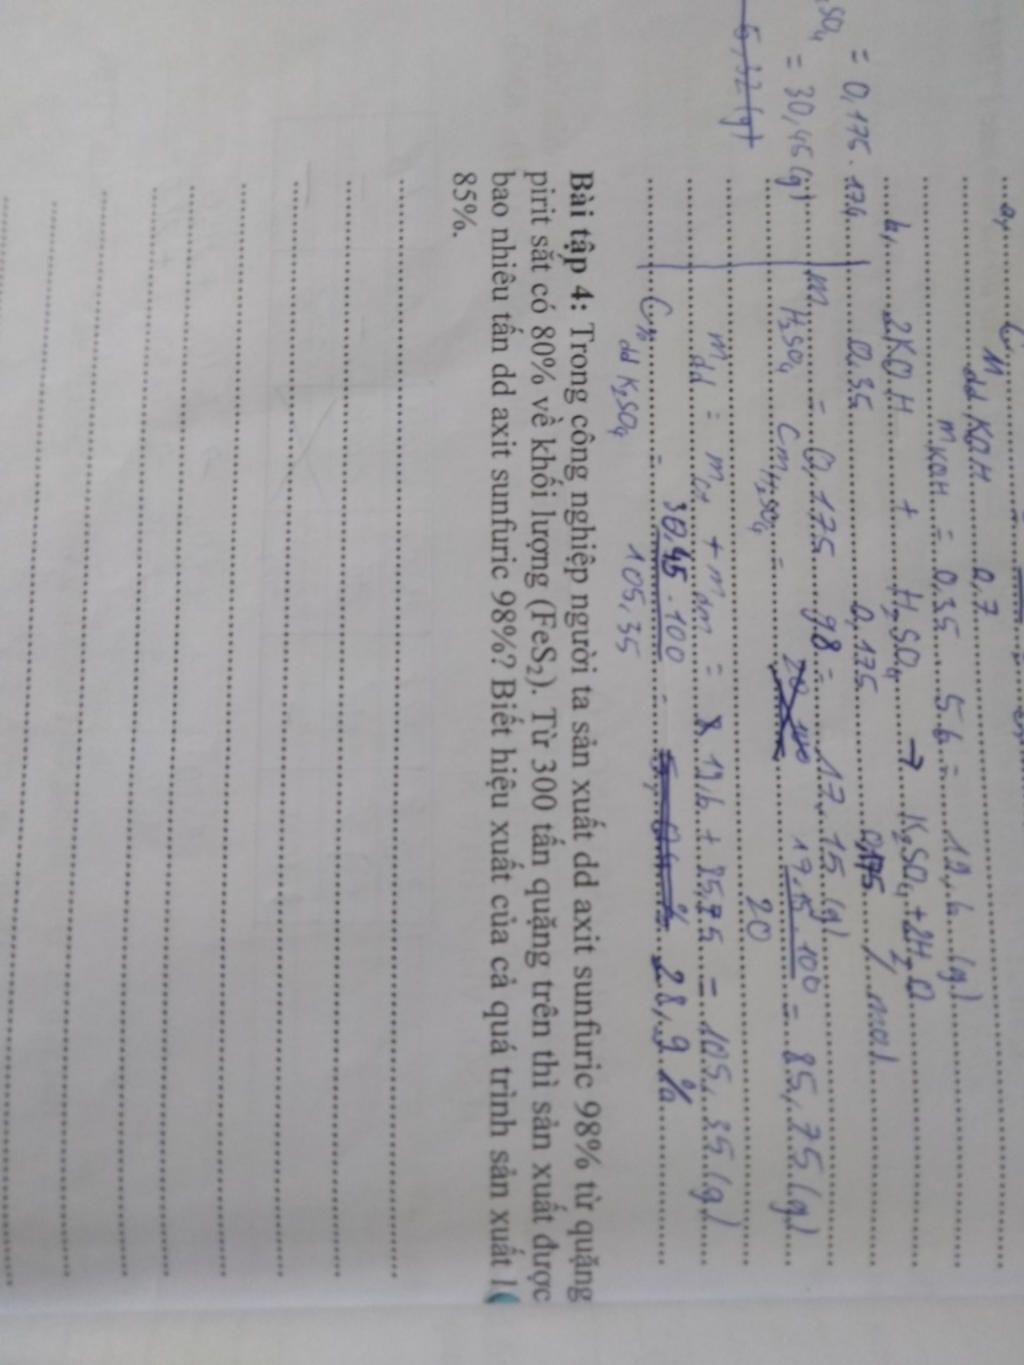 a,
CM dd KOH 0,7
mKOH = 0,35 . 56 = 19,6 (g)
b, 2KOH + H2SO4 → K2SO4 + 2H2O
0,35 0,175 0,175 / mol
SO4 = 0,175 . 174
= 30,45 (g)
m H2SO4 = 0,175 . 98 = 17,15 (g)
Cm H2SO4 = 17,15 . 100 = 85,75 (g)
20
mdd = mct + mdm = 19,6 + 85,75 = 105,35 (g)
C% dd K2SO4 = 30,45 . 100 = 28,9 %
105,35
Bài tập 4: Trong công nghiệp người ta sản xuất dd axit sunfuric 98% từ quặng
pirit sắt có 80% về khối lượng (FeS2). Từ 300 tấn quặng trên thì sản xuất được
bao nhiêu tấn dd axit sunfuric 98%? Biết hiệu xuất của cả quá trình sản xuất
85%.